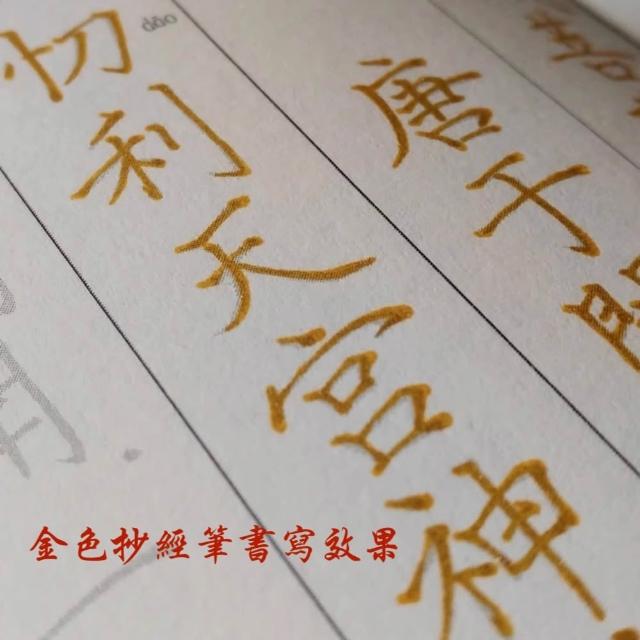 唐于
忉利天宮神
dāo
金色抄經筆書寫效果